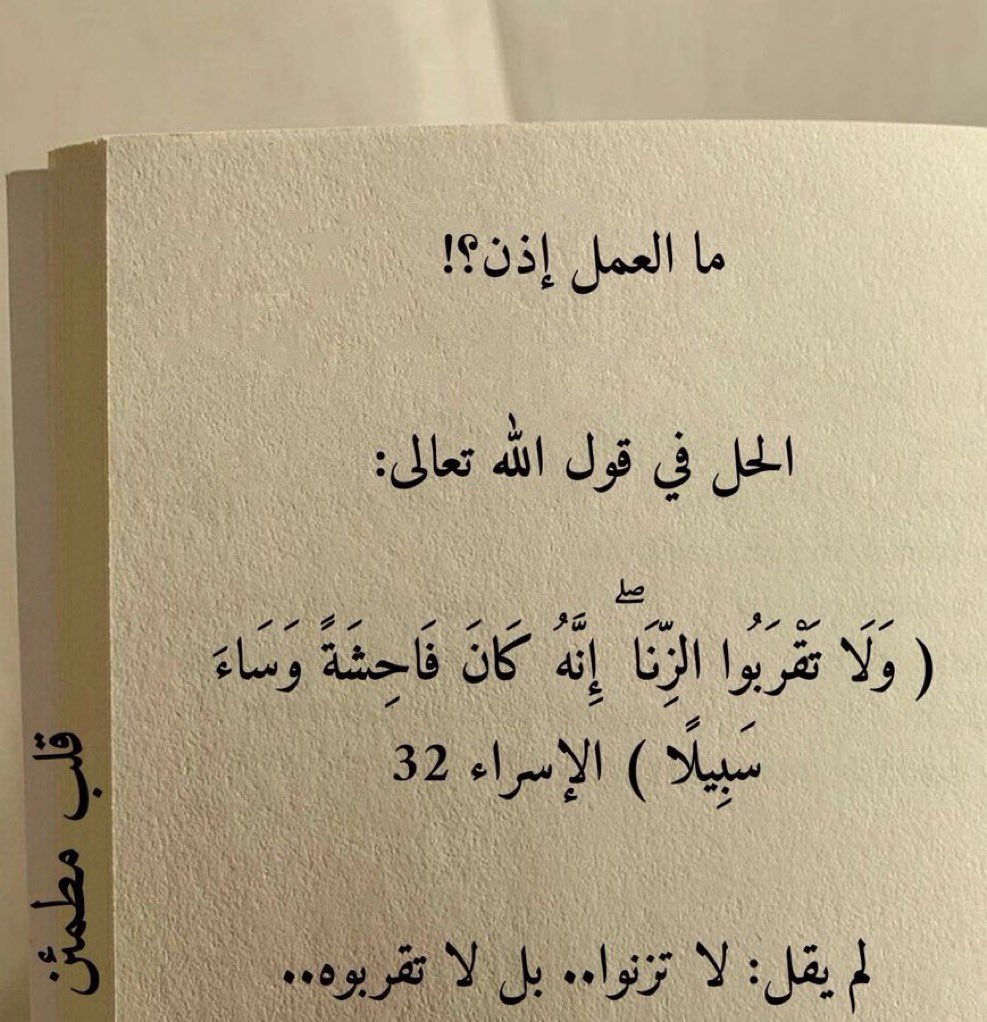 ما العمل إذن؟!
الحل في قول الله تعالى:
( وَلَا تَقْرَبُوا الزِّنَا ۖ إِنَّهُ كَانَ فَاحِشَةً وَسَاءَ
سَبِيلًا ) الإسراء 32
لم يقل: لا تزنوا.. بل لا تقربوه..
قلب مطمئن